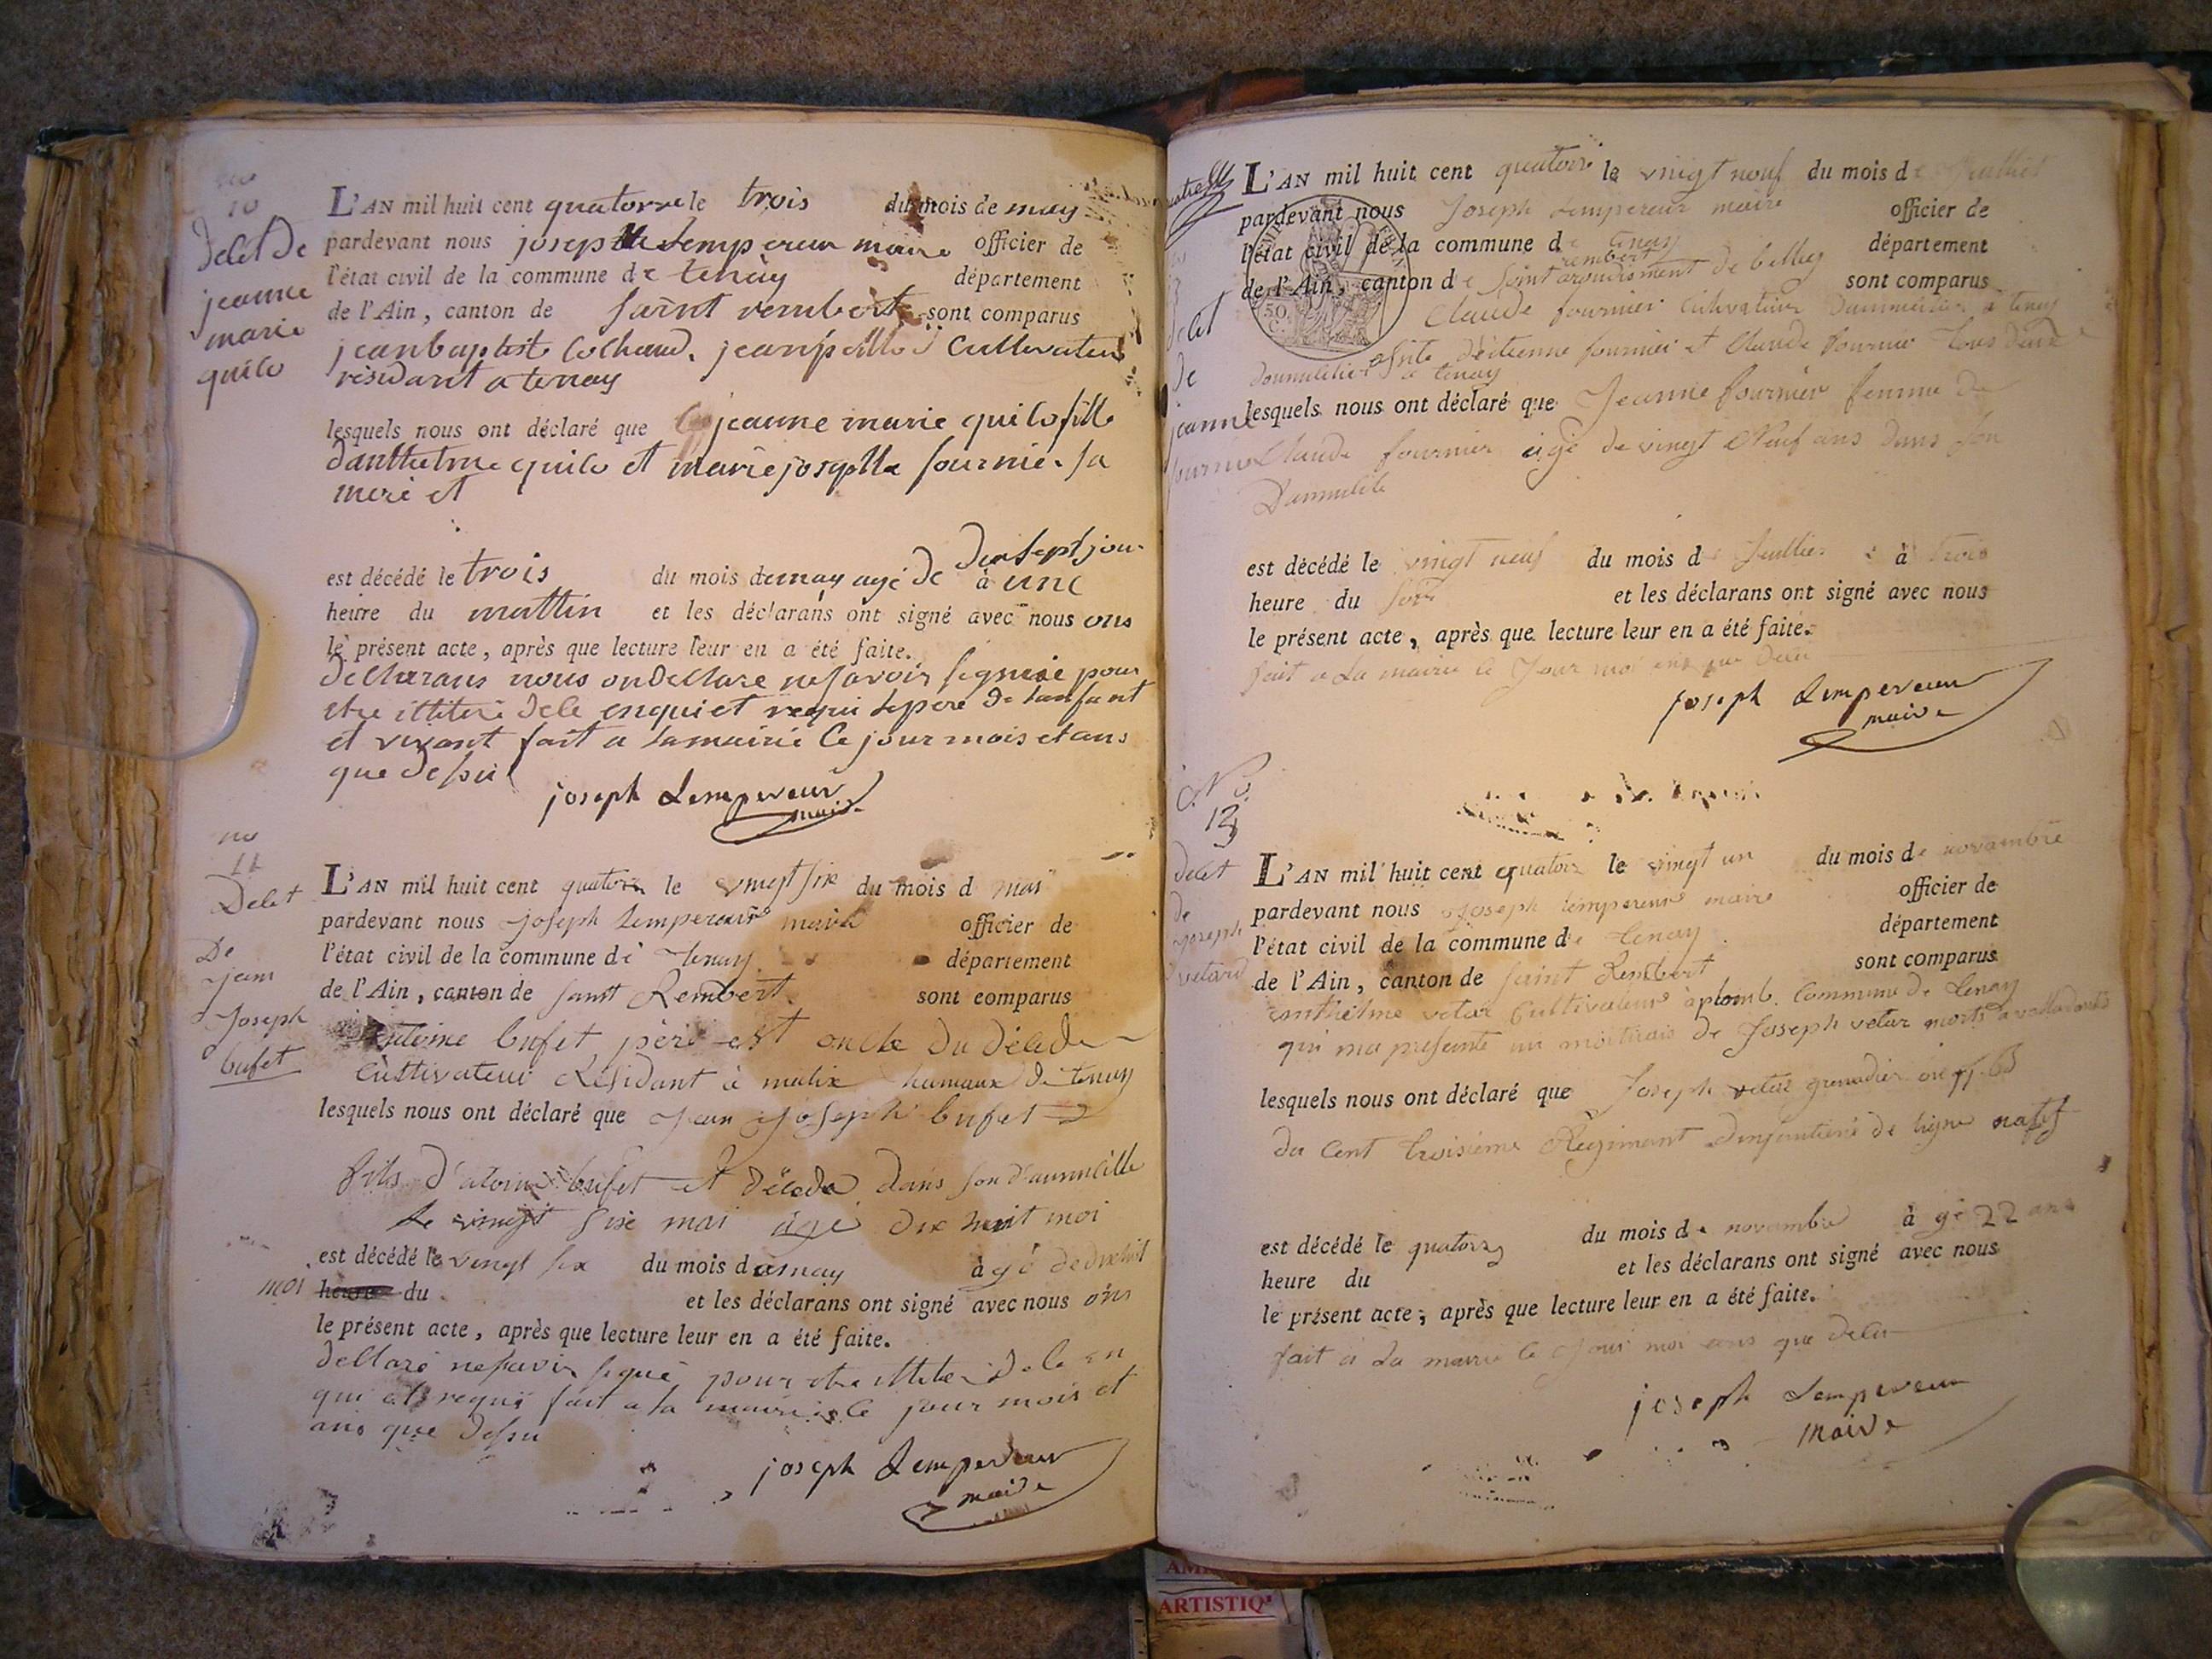 no
10
Delet De
jeanne
marie
quilo
L'AN mil huit cent quatorze le trois du mois de may
pardevant nous joseph Lempereur maire officier de
l'état civil de la commune de tenay département
de l'Ain, canton de saint rembert sont comparus
jean baptiste Cochaud, jean Cultivateur
résidant a tenay
lesquels nous ont déclaré que jeanne marie quilo fille
danthelme quilo et marie josephte fournié sa
mere et
est décédé le trois du mois de may agé de dix sept jour à une
heure du mattin et les déclarans ont signé avec nous ons
le présent acte, après que lecture leur en a été faite.
declarans nous on declare ne savoir signere pour
etre illiteré de le enquiet requi le pere de lanfant
et vivant fait a la mairie le jour mois et ans
que dessu
joseph Lempereur
maire
no
11
Delet
De
jean
Joseph
bufet
L'AN mil huit cent quatorz le vingt six du mois d mai
pardevant nous joseph Lempereur maire officier de
l'état civil de la commune de tenay département
de l'Ain, canton de saint Rembert sont comparus
Antoine bufet père est oncle du décéde
Cultivateur Résidant à malix hamaux de tenay
lesquels nous ont déclaré que jean joseph bufet
fils d'atoine bufet et décéde dans son
Le vingt six mai agé dix huit moi
est décédé le vingt six du mois de may à gé de dix huit
moi heure du et les déclarans ont signé avec nous ons
le présent acte, après que lecture leur en a été faite.
declaré ne savir signé pour etre illiteré de le en
qui et requi fait a la mairie le jour mois et
ans que dessu
joseph Lempereur
maire
Delet
De
jeanne
fournier
L'AN mil huit cent quatorze le vingt neuf du mois de Juillet
pardevant nous Joseph Lempereur maire officier de
l'état civil de la commune de tenay département
de l'Ain, canton de Saint rembert arondisment de belley sont comparus
Claude fournier Cultivateur a tenay
d'étienne fournier et Claude fournier tous deux
a tenay
lesquels nous ont déclaré que Jeanne fournier femme de
Claude fournier agé de vingt Neuf ans dans son
Dommicile
est décédé le vingt neuf du mois de Juillet à trois
heure du soir et les déclarans ont signé avec nous
le présent acte, après que lecture leur en a été faite.
fait a La mairie le Jour moi ans que desu
joseph Lempereur
maire
No
13
Delet
de
joseph
vetard
L'AN mil huit cent quatorz le vingt un du mois de novambre
pardevant nous Joseph Lempereur maire officier de
l'état civil de la commune de tenay département
de l'Ain, canton de saint Rembert sont comparus
anthelme vetar Cultivateur à plomb Commune de tenay
qui ma presanté un de Joseph vetar morts
lesquels nous ont déclaré que Joseph vetar grenadier
du cent troisième Régimant Dinfantiere de ligne natif
est décédé le quatorz du mois de novambre à gé 22 ans
heure du et les déclarans ont signé avec nous
le présent acte, après que lecture leur en a été faite.
fait a La mairie le jour moi ans que desu
joseph Lempereur
maire
ARTISTIQ